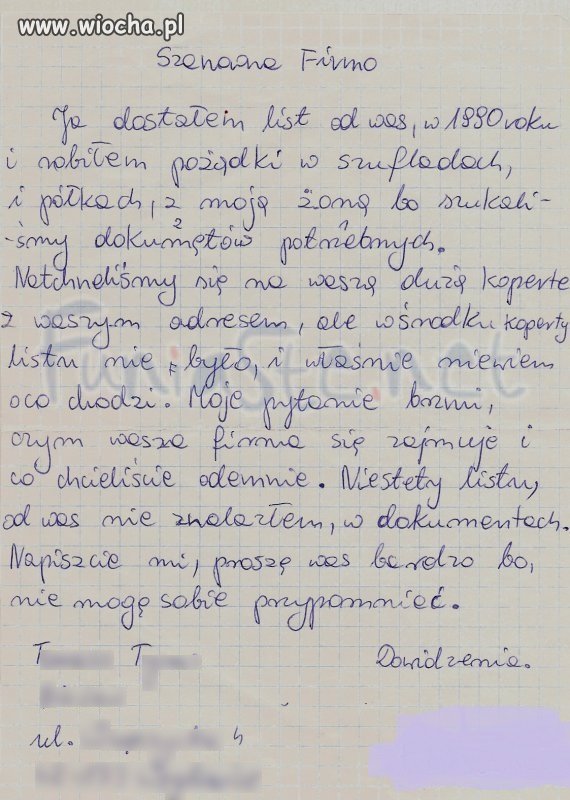 www.wiocha.pl
Szanowna Firmo
Ja dostałem list od was, w 1990 roku
i robiłem pożądki w szufladach,
i półkach, z moją żoną bo szukali-
-śmy dokumętów potrzebnych.
Natchneliśmy się na waszą dużą koperte
z waszym adresem, ale wśrodku koperty
listu nie było, i właśnie niewiem
oco chodzi. Moje pytanie brzmi,
czym wasza firma się zajmuje i
co chcieliście odemnie. Niestety listu,
od was nie znalazłem, w dokumentach.
Napiszcie mi, proszę was bardzo bo,
nie mogę sobie przypomnieć.
T T Dowidzenia.
ul.